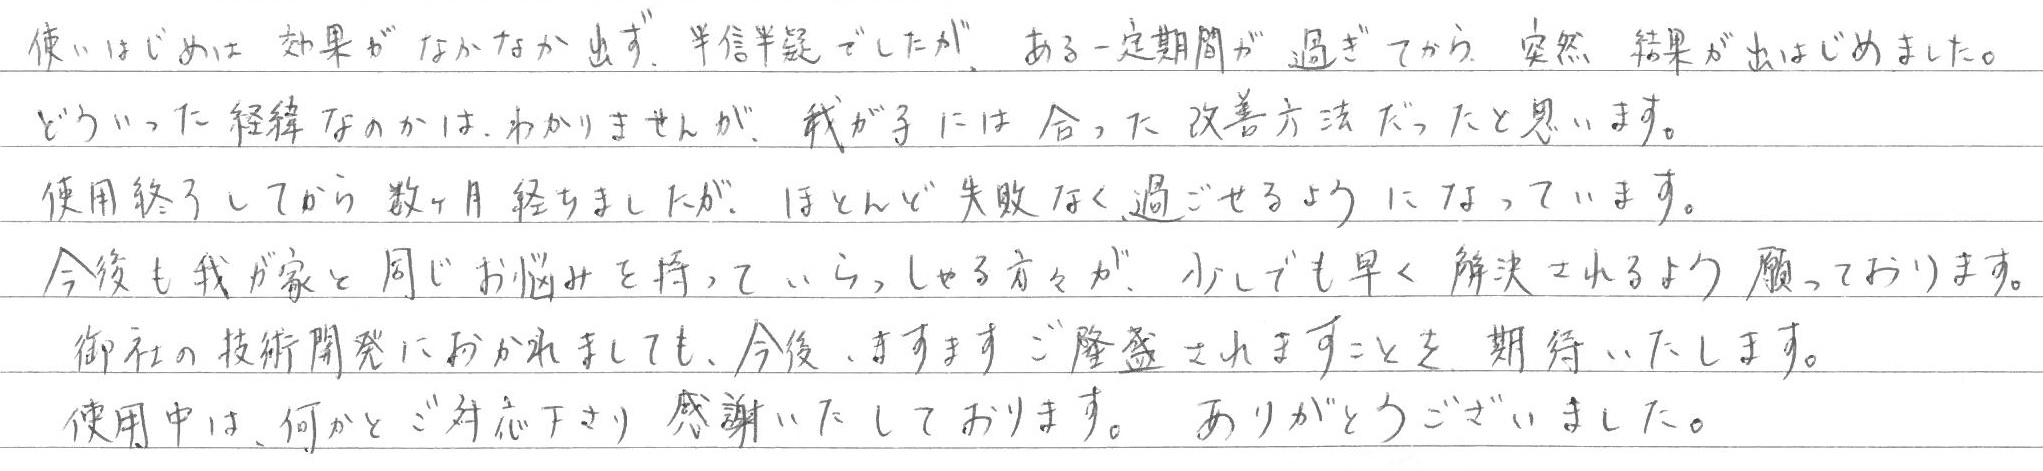 使いはじめは 効果が なかなか出ず、半信半疑でしたが、ある一定期間が 過ぎてから、突然 結果が出はじめました。
どういった経緯なのかは、わかりませんが、我が子には 合った 改善方法だったと思います。
使用終了してから 数ヶ月 経ちましたが、ほとんど失敗なく、過ごせるようになっています。
今後も我が家と同じお悩みを持っていらっしゃる方々が、少しでも早く 解決されるよう 願っております。
御社の技術開発におかれましても、今後、ますますご隆盛されますことを 期待いたします。
使用中は、何かとご対応下さり 感謝いたしております。 ありがとうございました。